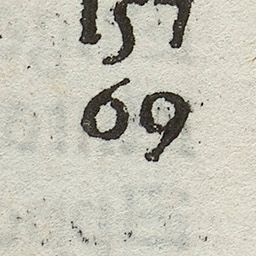 157
69